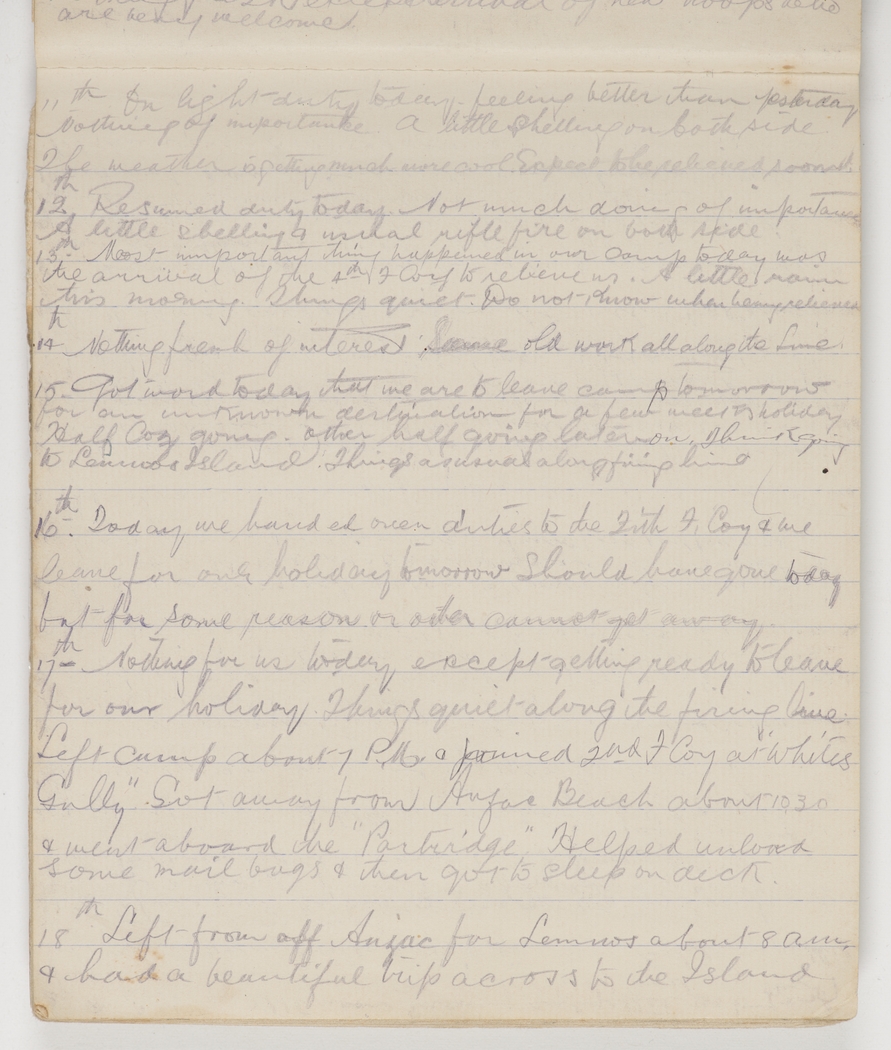 arrival of new troops who
are very welcome.
11th On light duty today. feeling better than yesterday
Nothing of importance. A little shelling on both side
The weather is getting much more cool. Expect to be relieved soon.
12th Resumed duty today. Not much doing of importance
A little shelling & usual rifle fire on both side.
13th. Most important thing happened in our camp today was
the arrival of the 4th F Coy to relieve us. A little rain
this morning. Things quiet. Do not know when being relieved
14th Nothing fresh of interest. Same old work all along the Line.
15. Got word today that we are to leave camp tomorrow
for an unknown destination for a few weeks holiday
Half Coy going. other half going later on. Think going
to Lemnos Island. Things as usual along firing line
16th. Today we handed over duties to the Fith F. Coy & we
leave for our holiday tomorrow Should have gone today
but for some reason or other cannot get away.
17th Nothing for us today except getting ready to leave
for our holiday. Things quiet along the firing line.
Left camp about 7 P.M. & joined 2nd F Coy at "Whites
Gully". Got away from Anzac Beach about 1030
& went aboard the "Partridge" Helped unload
some mail bags & then got to sleep on deck.
18th Left from off Anzac for Lemnos about 8 am.
& had a beautiful trip across to the Island